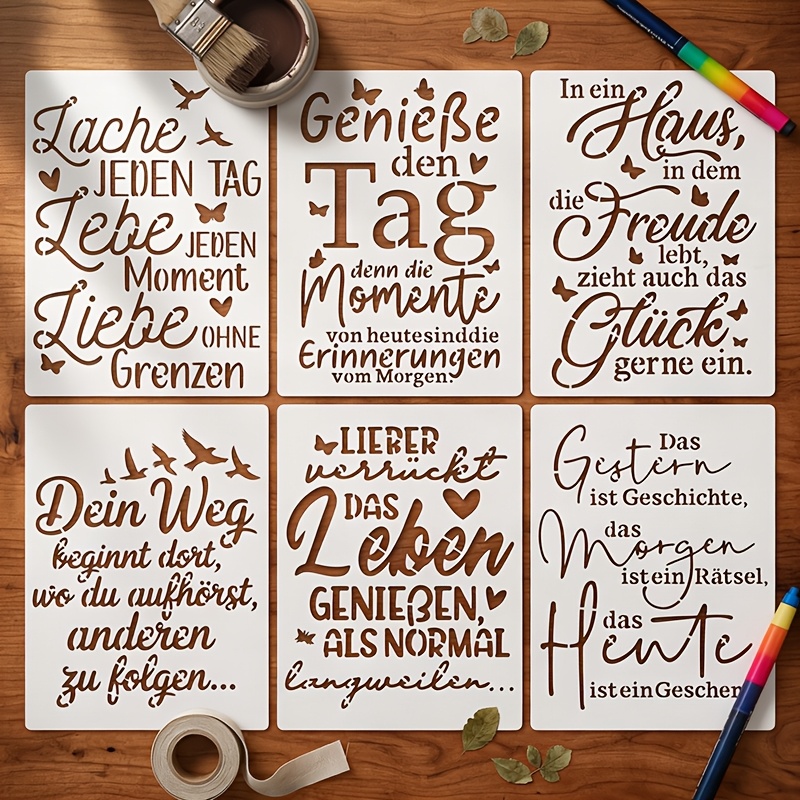 Lache
JEDEN TAG
Lebe JEDEN
Moment
Liebe OHNE
Grenzen
Genieße
den
Tag
denn die
Momente
von heutesinddie
Erinnerungen
vom Morgen.
In ein
Haus,
in dem
die Freude
lebt,
zieht auch das
Glück
gerne ein.
Dein Weg
beginnt dort,
wo du aufhörst,
anderen
zu folgen...
LIEBER
verrückt
DAS
Leben
GENIEßEN,
ALS NORMAL
langweilen...
Das
Gestern
ist Geschichte,
das
Morgen
istein Rätsel,
das
Heute
isteinGeschen